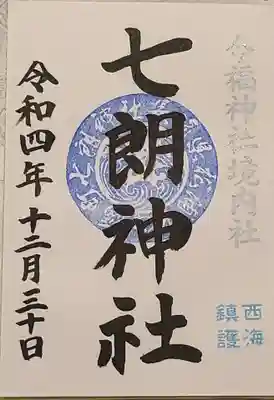 今福神社境内社
七朗神社
西海
鎮護
令和四年十二月三十日